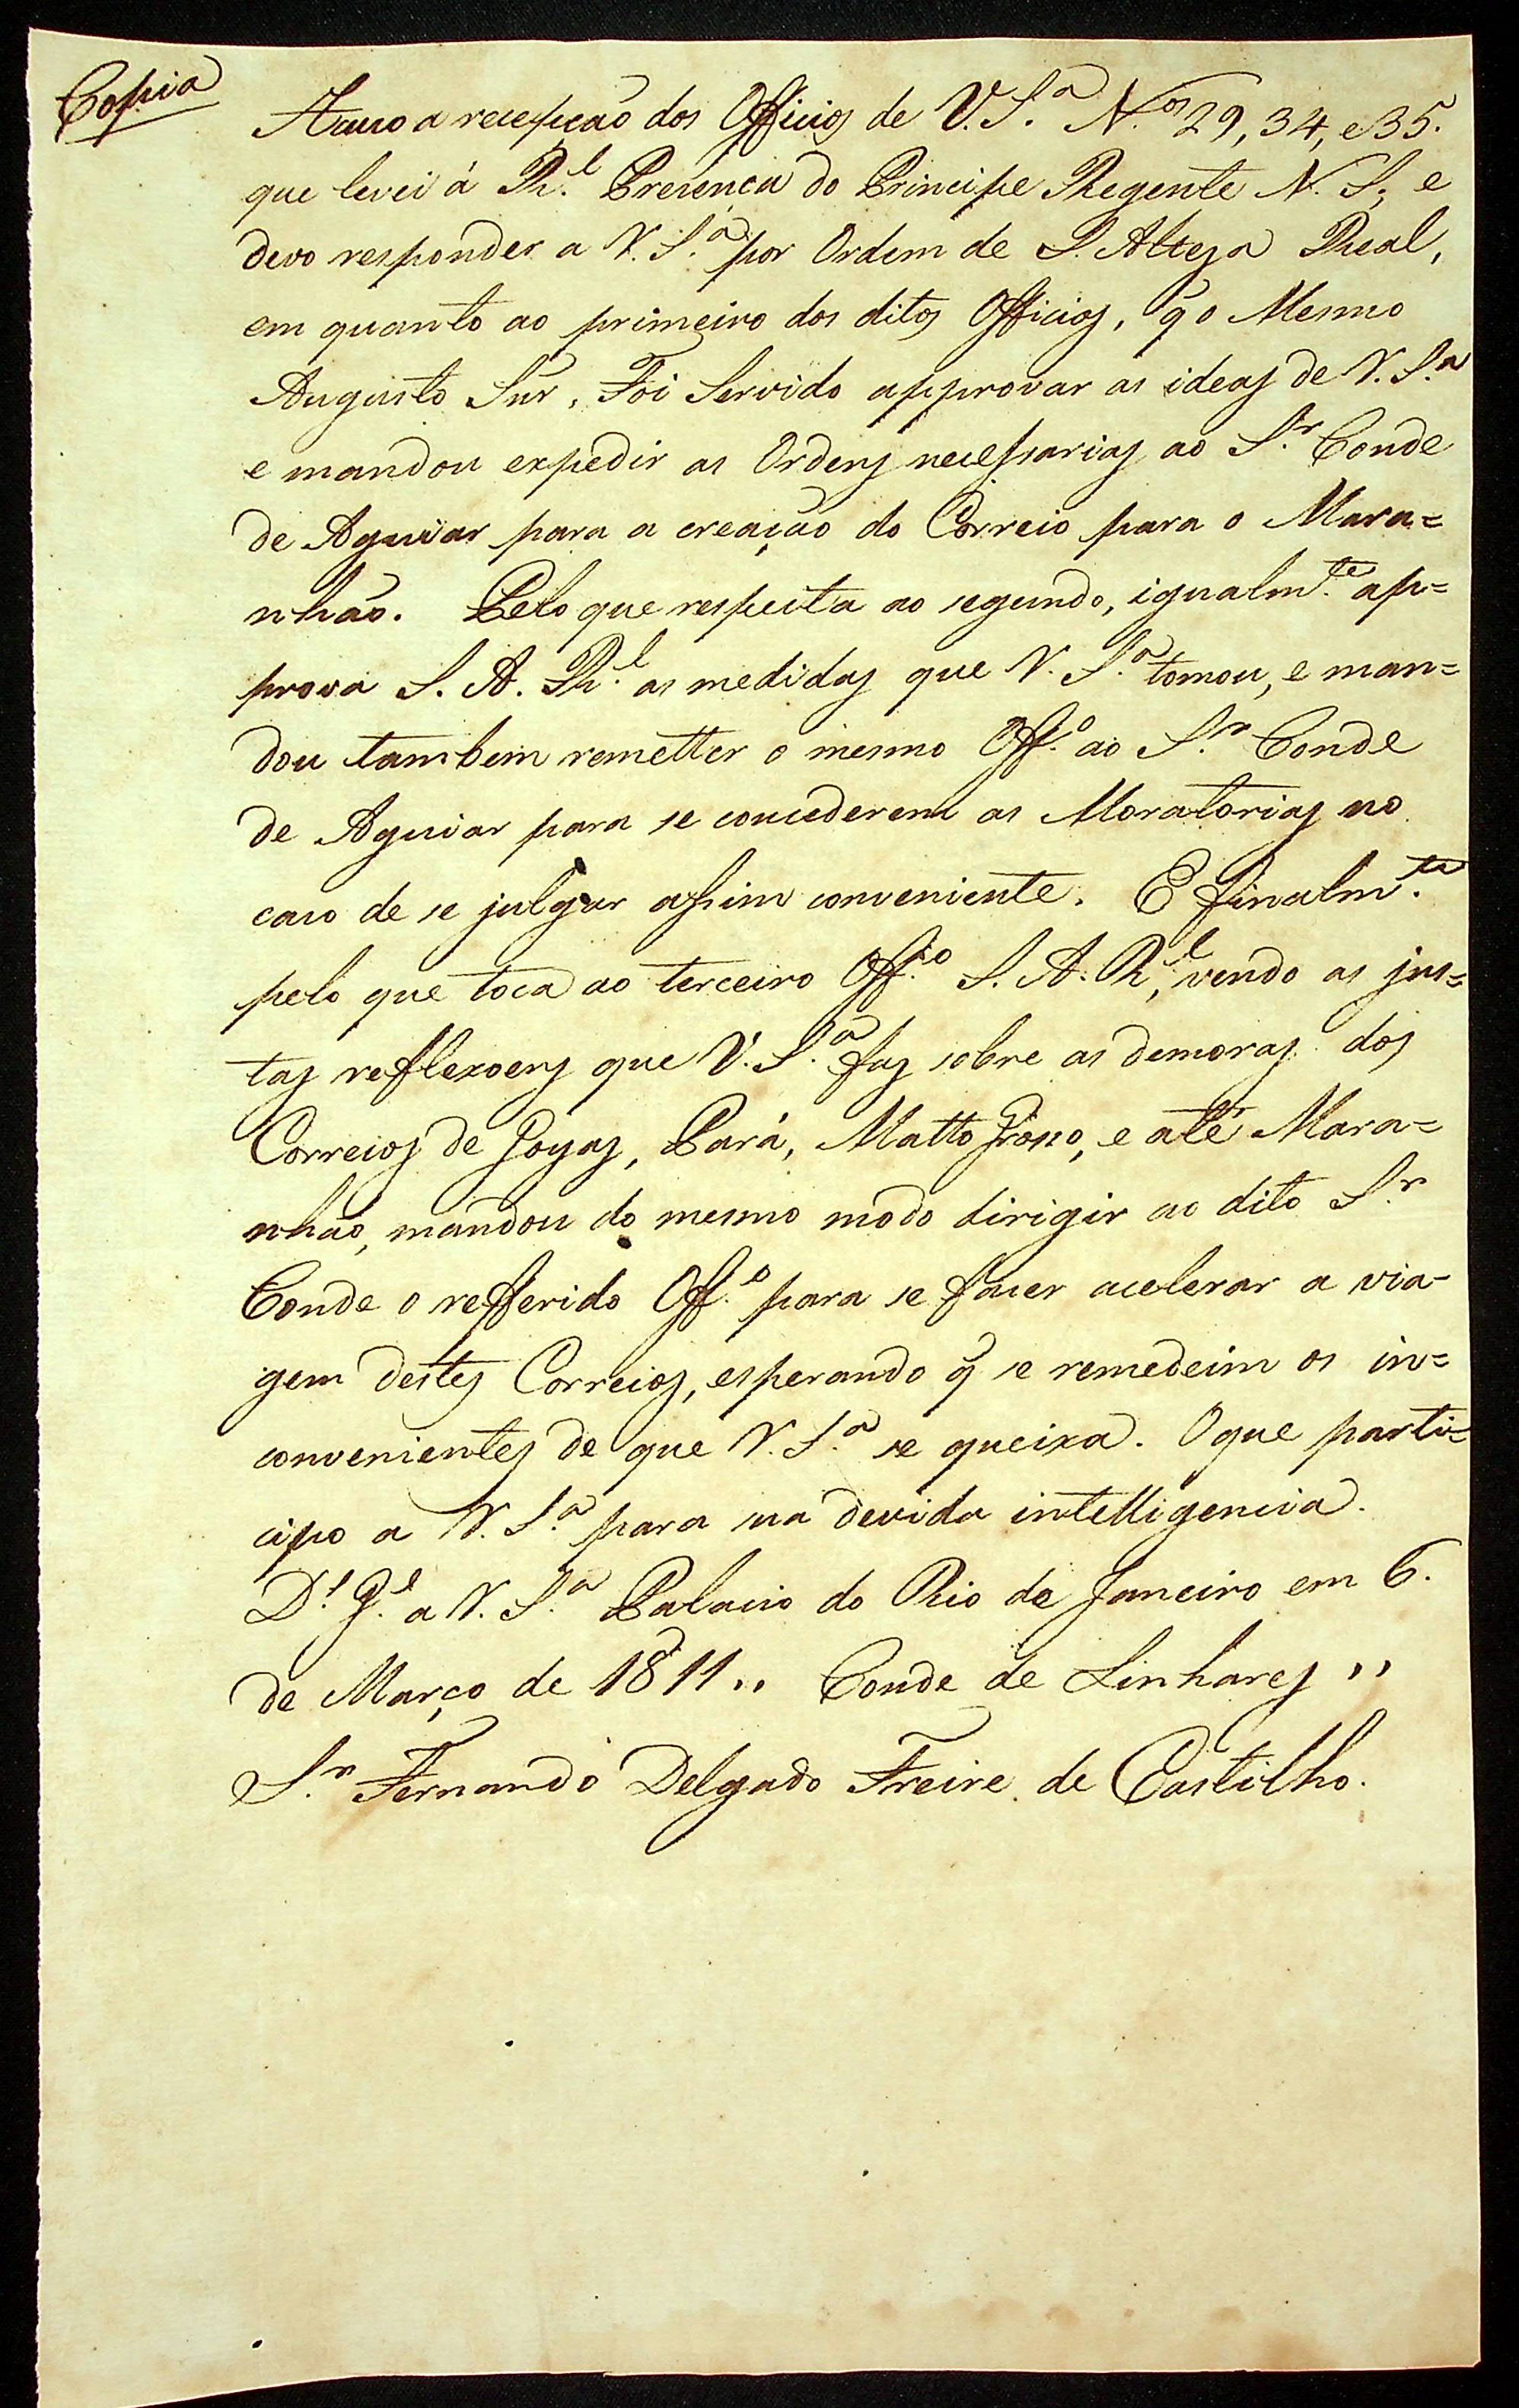 Copia
Accuso a recepção dos Officios de V. S.ª N.os 29, 34, e 35.
que levei á R.l Prezença do Principe Regente N. S., e
devo responder a V. S.ª por Ordem de S. Alteza Real,
em quanto ao primeiro dos ditos Officios, q̃ o Mesmo
Augusto Snr, Foi Servido approvar as ideas de V. S.ª
e mandou expedir as Ordens necessarias ao S.r Conde
de Aguiar para a creação do Correio para o Mara=
nhão. Pelo que respeita ao segundo, igualm.te ap=
prova S. A. R.l as medidas que V. S.ª tomou, e man=
dou tambem remetter o mesmo Off.o ao S.r Conde
de Aguiar para se concederem as Moratorias no
caso de se julgar assim conveniente. E finalm.te
pelo que toca ao terceiro Off.o S. A. R.l, vendo as jus=
tas reflexoens que V. S.ª faz sobre as demoras dos
Correios de Goyas, Pará, Matto Grosso, e até Mara=
nhão, mandou do mesmo modo dirigir ao dito S.r
Conde o refferido Off.o para se fazer acelerar a via=
gem destes Correios, esperando q̃ se remedeim os in=
convenientes de que V. S.ª se queixa. O que parti=
cipo a V. S.ª para sua devida intelligencia.
D.s G.e a V. S.ª Palacio do Rio de Janeiro em 6.
de Março de 1811 ,, Conde de Linhares ,,
S.r Fernando Delgado Freire de Castilho.